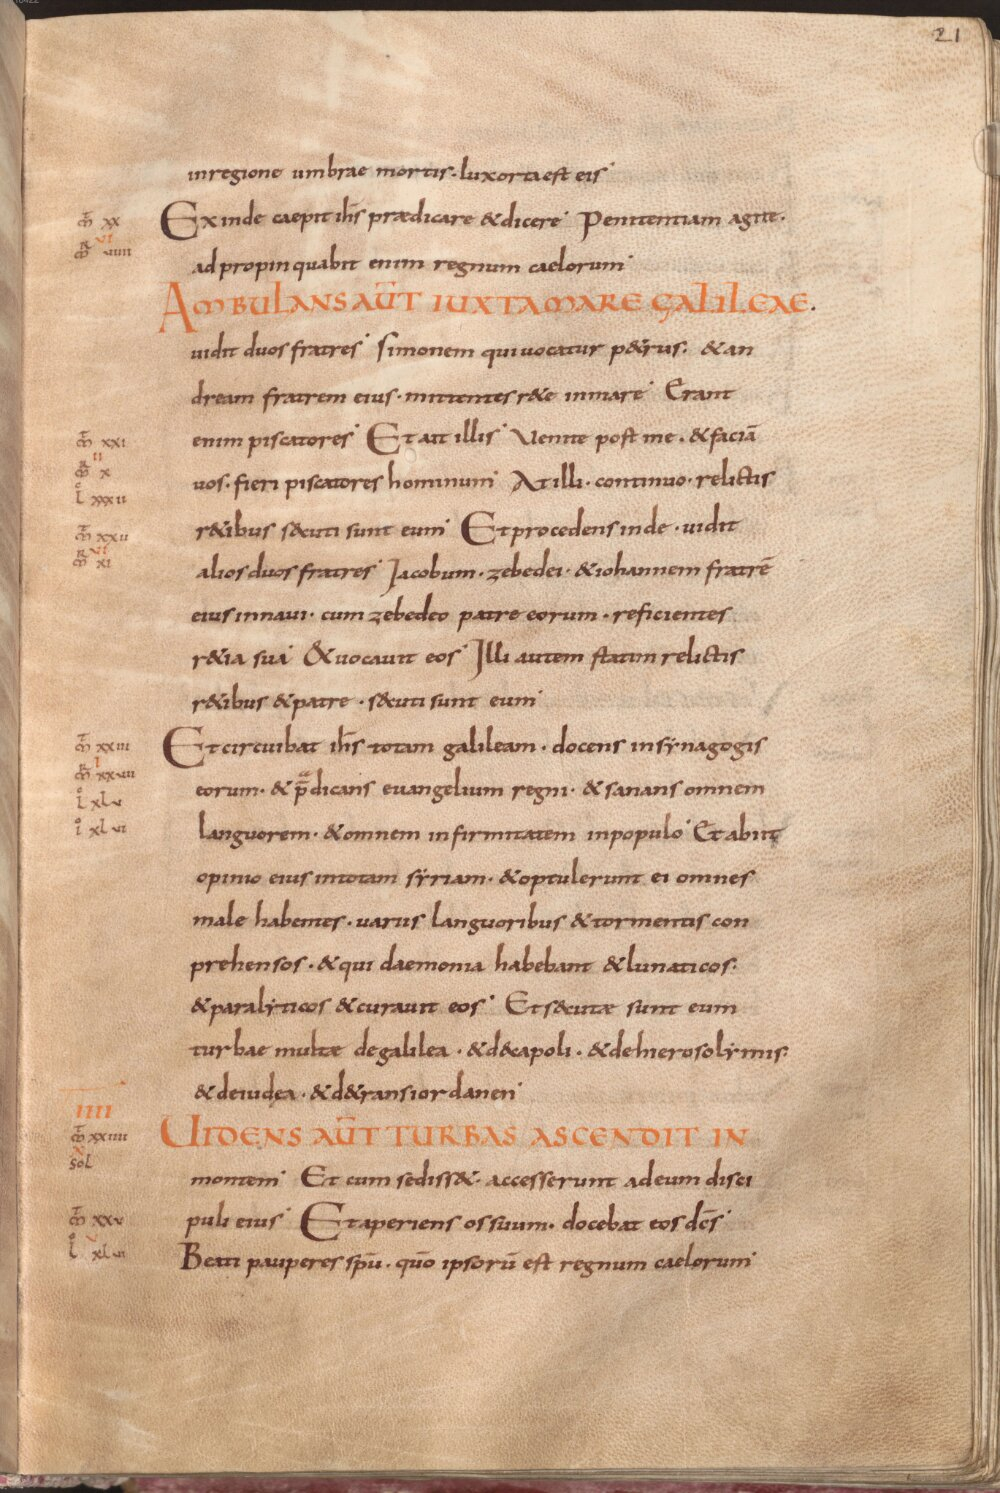 21
inregione umbrae mortis. lux orta est eis
m̄ xx
Exinde caepit ih̄s prædicare & dicere Penitentiam agite.
mr̄ vi viiii
adpropinquabit enim regnum caelorum
AMBULANS AŪT IUXTA MARE GALILEAE.
vidit duos fratres Simonem qui vocatur p&rus. & an
dream fratrem eius. mittentes r&e inmare Erant
m̄ xxi
enim piscatores Et ait illis Venite post me. & faciā
mr̄ ii x
vos. fieri piscatores hominum At illi. continuo. relictis
l xxxii
m̄ xxii
r&ibus s&cuti sunt eum Et procedens inde. vidit
mr̄ vi xi
alios duos fratres Jacobum. zebedei. & iohannem fratrē
eius innavi. cum zebedeo patre eorum. reficientes
r&ia sua & vocavit eos Illi autem statim relictis
r&ibus & patre. s&cuti sunt eum
m̄ xxiii
Et circuibat ih̄s totam galileam. docens insynagogis
mr̄ i xxvii
eorum. & p̄dicans evangelium regni. & sanans omnem
l xlv
i xlvi
languorem. & omnem infirmitatem inpopulo Et abiit
opinio eius intotam syriam. & optulerunt ei omnes
male habentes. variis languoribus & tormentis con
prehensos. & qui daemonia habebant & lunaticos.
& paralyticos & curavit eos Et s&cutæ sunt eum
turbae multæ degalilea. & d&capoli. & dehierosolymis.
& deiudęa. & d&ransiordanen
IIII
m̄ xxiiii
UIDENS AŪT TURBAS ASCENDIT IN
x
sol
montem Et cum sediss&. accesserunt ad eum disci
m̄ xxv
puli eius Et aperiens os suum. docebat eos dc̄s
l v xlvi
Beati pauperes spū. quō ipsorū est regnum caelorum